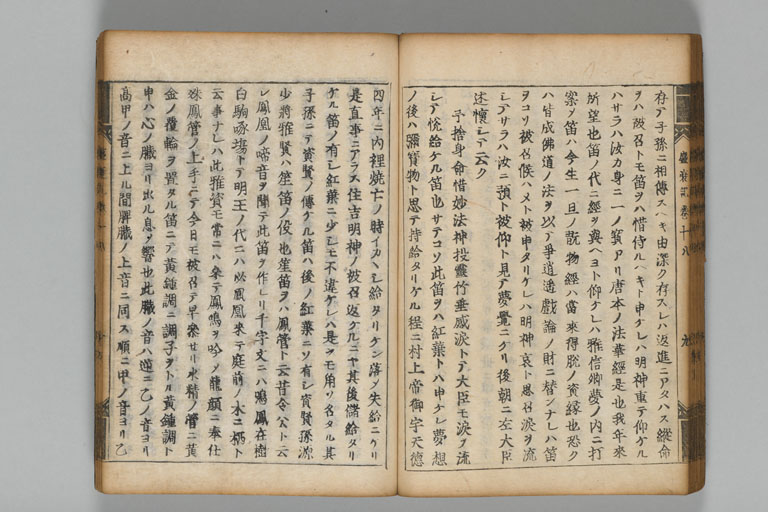 存テ子孫ニ相傳スヘキ由深ク存スレハ返進ニアタハス縱命
ヲハ被召トモ笛ヲハ惜侍ルヘキト申ケレハ明神重テ仰ケル
ハサラハ汝カ身ニ一ノ寶アリ唐本ノ法華經是也我年來
所望也笛ノ代ニ經ヲ奠ヘヨト仰ケレハ雅信卿夢ノ内ニ打
案ノ笛ハ今生一旦ノ翫物經ハ當來得脱ノ資緣也恐ク
ハ皆成佛道ノ法ヲ以テ爭逍遙戲論ノ財ニ替ンナレハ笛
ヲコソ被召候ハメト被申タリケレハ明神哀ト思召涙ヲ流
シテサラハ汝ニ預ト被仰ト見テ夢覺ニケリ後朝ニ左大臣
述懷シテ云ク
予捨身命惜妙法神投靈竹垂感涙トテ大臣モ涙ヲ流
シテ悅給ケル笛也サテコソ此笛ヲハ紅葉トハ申ケレ夢想
ノ後ハ彌寶物ト思テ持給タリケル程ニ村上帝御宇天德
四年ニ内裡燒亡ノ時イカヽシ給タリケン落ノ失給ニケリ
是直事ニアラス住吉明神ノ被召返ケルニヤ其後儲給タリ
ケル笛ノ有シ紅葉ニ少シモ不違ケレハ是ヲモ角ソ名タル其
子孫ニテ資賢ノ傳ケル笛ハ後ノ紅葉ニソ有シ資賢孫源
少將雅賢ハ笙笛ノ役也笙笛ヲハ鳳管ト云昔令公ト云
シ鳳凰ノ啼音ヲ聞テ此笛ヲ作レリ千字文ニハ鳴鳳在樹
白駒啄場トテ明王ノ代ニハ必鳳凰來テ庭前ノ木ニ栖ト
云事ナレハ此雅賢モ常ニハ參テ鳳鳴ヲ吟ノ龍顏ニ奉仕
殊鳳管ノ上手ニテ今日モ被召テ早參セリ水精ノ管ニ黃
金ノ覆輪ヲ置タル笛ニテ黃鐘調ニ調子ヲトル黃鐘調ト
申ハ心ノ臟ヨリ出ル息ノ響也此臟ノ音ハ逆ニ乙ノ音ヨリ
高甲ノ音ニ上ル間脾臟ノ上音ニ同ス順ニ甲ノ音ヨリ乙